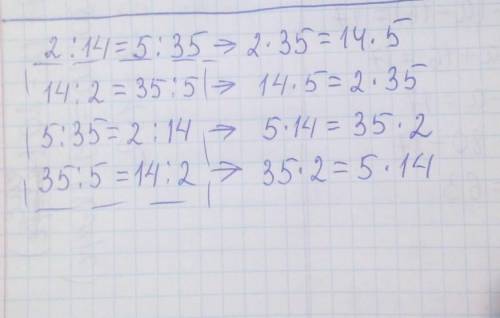 2:14=5:35 → 2·35=14·5
14:2=35:5 → 14·5=2·35
5:35=2:14 → 5·14=35·2
35:5=14:2 → 35·2=5·14